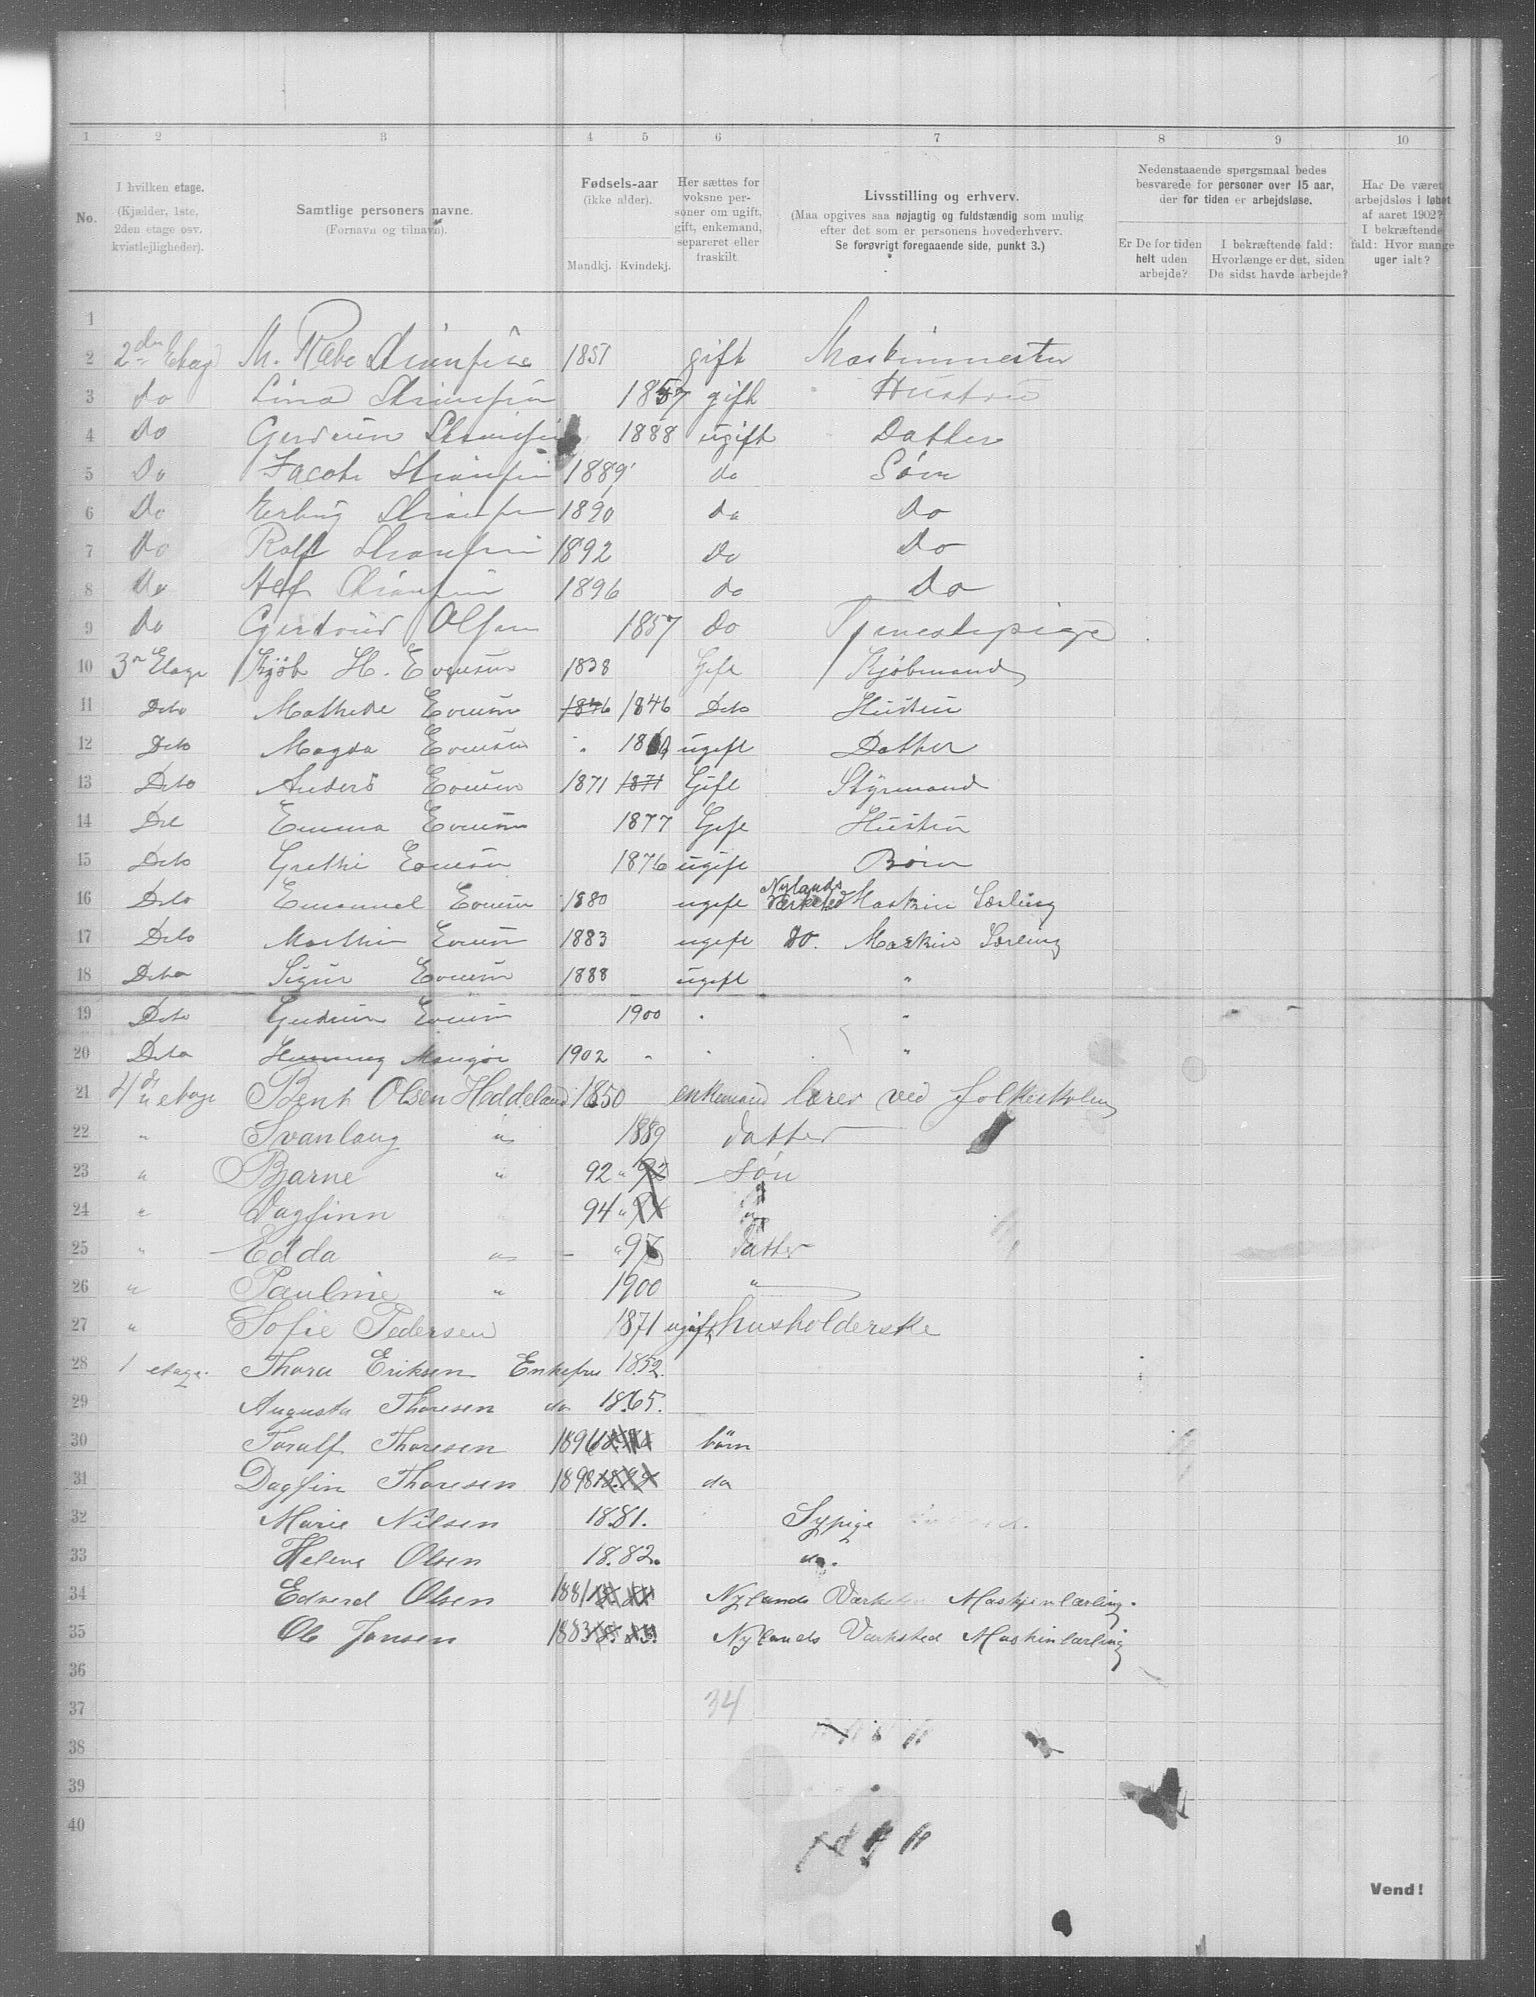 1 2 3 4 5 6 7 8 9 10
No.
I hvilken etage.
(Kjælder, 1ste,
2den etage osv.
kvistlejligheder).
Samtlige personers navne.
(Fornavn og tilnavn).
Fødsels-aar
(ikke alder).
Mandkj. Kvindekj.
Her sættes for
voksne per-
soner om ugift,
gift, enkemand,
separeret eller
fraskilt
Livsstilling og erhverv.
(Maa opgives saa nøjagtig og fuldstændig som mulig
efter det som er personens hovederhverv.
Se forøvrigt foregaaende side, punkt 3.)
Nedenstaaende spørgsmaal bedes
besvarede for personer over 15 aar,
der for tiden er arbejdsløse.
Er De for tiden
helt uden
arbejde?
I bekræftende fald:
Hvorlænge er det, siden
De sidst havde arbejde?
Har De været
arbejdsløs i løbet
af aaret 1902?
I bekræftende
fald: Hvor mange
uger ialt?
1
2 2den Etage M. 1851 gift Maskinmester
3 do Lina 1857 gift Hustru
4 Do 1888 ugift Datter
5 Do Jacob 1889 do Søn
6 Do Erling 1890 do Do
7 Do Rolf 1892 Do Do
8 Do Alf 1896 do Do
9 Do Gertrud Olsen 1857 Do Tjenestepige
10 3 Etage Kjøb H. Evensen 1838 Gift Kjøbmand
11 Dito Mathilde Evensen 1846 1846 Dito Hustru
12 Dito Magda Evensen " ugift Datter
13 Dito Anders Evensen 1871 1871 Gift Styrmand
14 Dit Emma Evensen 1877 Gift Hustru
15 Dito Grethe Evensen 1876 ugift Børn
16 Dito Emanuel Evensen 1880 ugift Nylands Værksted Maskin Lærling
17 Dito Evensen 1883 ugift Do. Maskin Lærling
18 Dito Evensen 1888 ugift "
19 Dito Gudrun Evensen 1900 " "
20 Dito Henning 1902 " " "
21 4de etage Bent Olsen Heddeland 1850 enkemand lærer ved folkeskolen
22 " Svanlaug " 1889 datter
23 " Bjarne " 92 " 92 søn
24 " Dagfinn " 94 " "
25 " Edda " " datter
26 " Pauline " 1900 "
27 " Sofie Pedersen 1871 ugift husholderske
28 1 etage. Thora Eriksen Enkefru 1852.
29 Augusta Thoresen do 1865.
30 Toralf Thoresen 1896 børn
31 Dagfin Thoresen 1898 do
32 Marie Nilsen 1881. Sypige
33 Helene Olsen 1882. do.
34 Edvard Olsen 1881 Nylands Værksted Maskjinlærling.
35 Ole Jonsen 1883 Nylands Værksted Maskinlærling
36
37 34
38
39
40
Vend!